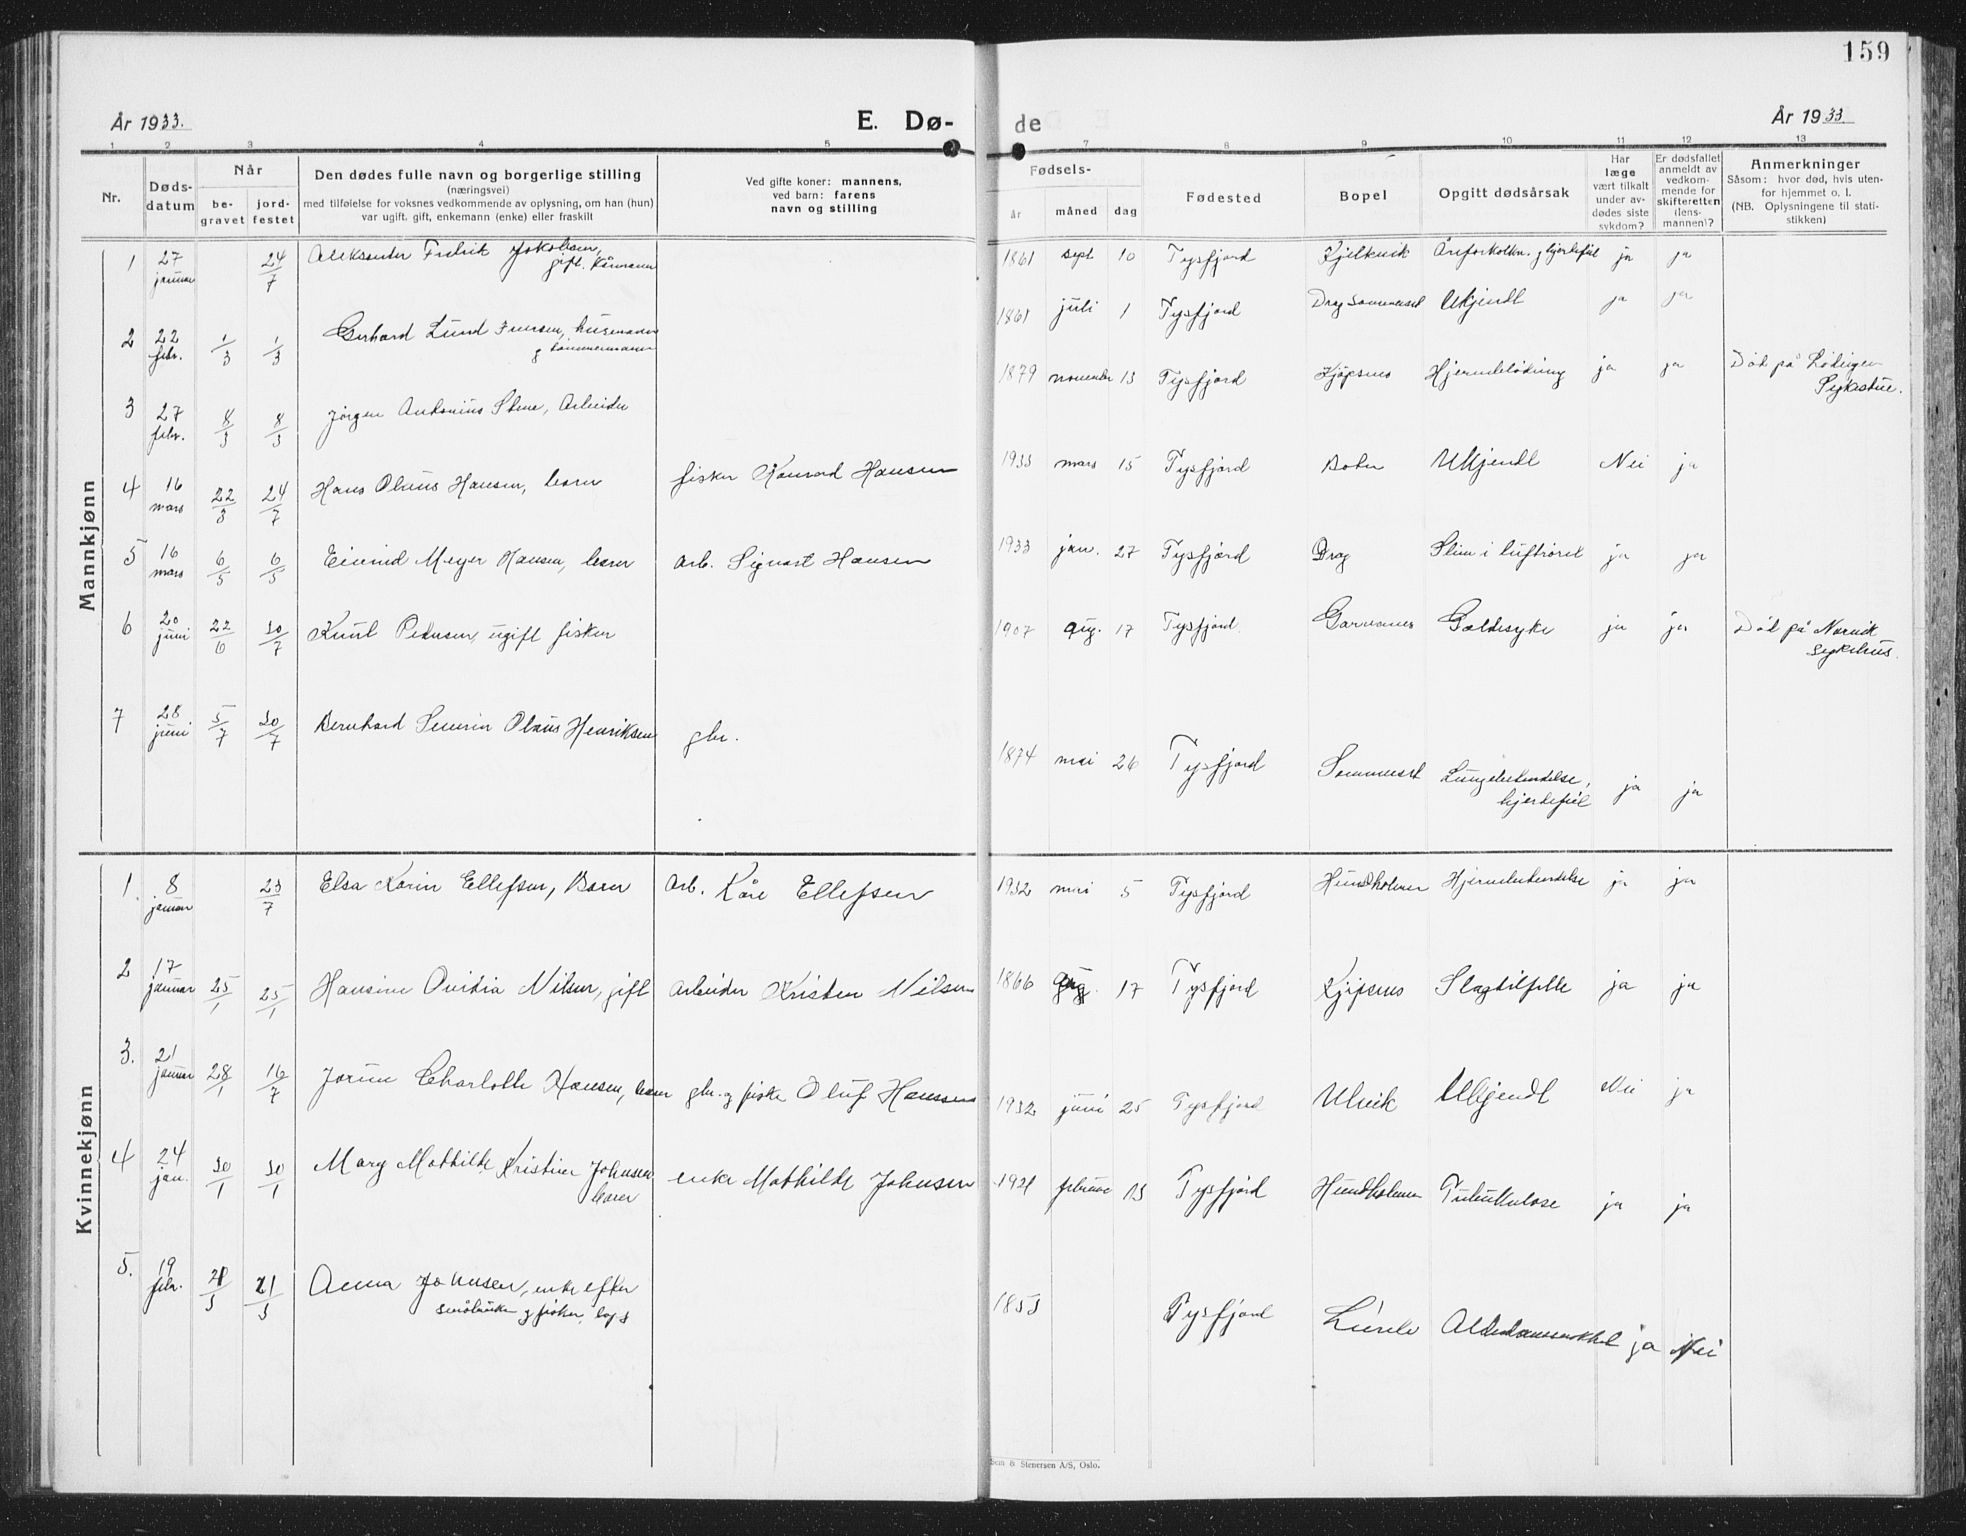 159
År 1933.
E. Dø-
de
År 1933.
1 2 3 4 5 7 8 9 10 11 12 13
Nr.
Døds-
datum
Når
be-
gravet
jord-
festet
Den dødes fulle navn og borgerlige stilling
(næringsvei)
med tilføielse for voksnes vedkommende av oplysning, om han (hun)
var ugift, gift, enkemann (enke) eller fraskilt
Ved gifte koner: mannens,
ved barn: farens
navn og stilling
Fødsels-
år
måned
dag
Fødested
Bopel
Opgitt dødsårsak
Har
læge
vært tilkalt
under av-
dødes siste
sykdom?
Er dødsfallet
anmeldt av
vedkom-
mende for
skifteretten
(lens-
mannen)?
Anmerkninger
Såsom: hvor død, hvis uten-
for hjemmet o. l.
(NB. Oplysningene til stati-
stikken)
Mannkjønn
1 27 januar 24/7 Aleksander Fredrik Jakobsen, 1861 sept 10 Tysfjord Kjelkvik Åreforkalkn. og hjertefeil ja ja
gift. kårmann
2 22 febr. 1/3 1/3 Gerhard Lund Iversen, husmann 1861 juli 1 Tysfjord Drag Sommerset Ukjendt ja ja
g tømmermann
3 27 febr. 8/3 8/3 Jørgen Antonius Stene, Arbeider 1879 november 13 Tysfjord Kjøpsnes Hjerneblødning ja ja Död på Lödingen
Sykestue.
4 16 mars 22/3 24/7 Hans Olaus Hansen, barn fisker Konrad Hansen 1933 mars 15 Tysfjord Ukjendt Nei ja
5 16 mars 6/5 6/5 Eivind Meyer Hansen, barn arb. Sigvart Hansen 1933 jan. 27 Tysfjord Drag Slim i luftröret ja ja
6 20 juni 22/6 30/7 Knut Pedersen, ugift fisker 1907 aug. 17 Tysfjord Garnanes Galdesyke ja ja Död på Narvik
sykehus.
7 28 juni 5/7 30/7 Bernhard Severin Olaus Henriksen gbr. 1874 mai 26 Tysfjord Sommerset Lungebetendelse,
hjertefeil ja ja
Kvinnekjønn
1. 8 januar 23/7 Elsa Karin Ellefsen, Barn Arb. Kåre Ellefsen 1932 mai 5 Tysfjord Hundholmen Hjernebetendelse ja ja
2 17 januar 25/1 25/1 Hansine Ovidia Nilsen, gift Arbeider Kristen Nilsen 1866 aug. 17 Tysfjord Kjöpsnes Slagtilfelle ja ja
3. 21 januar 28/1 16/7 Jorun Charlotte Hansen, barn gbr. g fisker Oluf Hanssen 1932 juni 25 Tysfjord Ulvik Ukjendt Nei ja
4 24 jan. 30/1 30/1 Mary Mathilde Kristine Johnsen, enke Mathilde Johnsen 1921 februar 13 Tysfjord Hundholmen Tuberkulose ja ja
barn
5. 19 febr. 21/3 21/3 Anna Johnsen, enke efter 1853 Tysfjord Alderdomssvakhet ja Nei
småbruker g fisker, lap s
Sem & Stenersen A/S, Oslo.